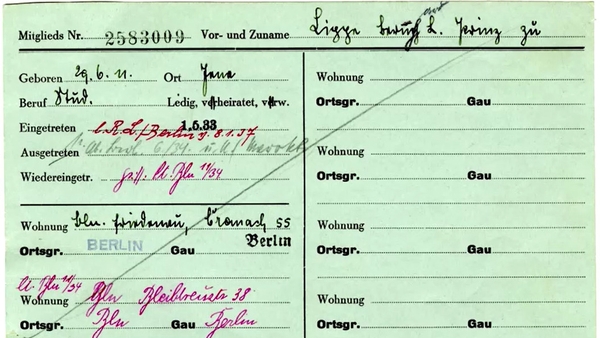 Mitglieds Nr. 2583009 Vor- und Zuname Lippe L. Prinz zu
Geboren 29.6.11. Ort Jena
Beruf Stud. Ledig, verheiratet, verw.
Eingetreten 1.5.33
b.R.L./Berlin v. 8.1.37
Ausgetreten
Wiedereingetr. 11/34
Wohnung Bln. Friedenau, Cranach 55
Ortsgr. BERLIN Gau Berlin
11/34
Wohnung Bln Bleibtreustr 38
Ortsgr. Bln Gau Berlin
Wohnung
Ortsgr. Gau
Wohnung
Ortsgr. Gau
Wohnung
Ortsgr. Gau
Wohnung
Ortsgr. Gau